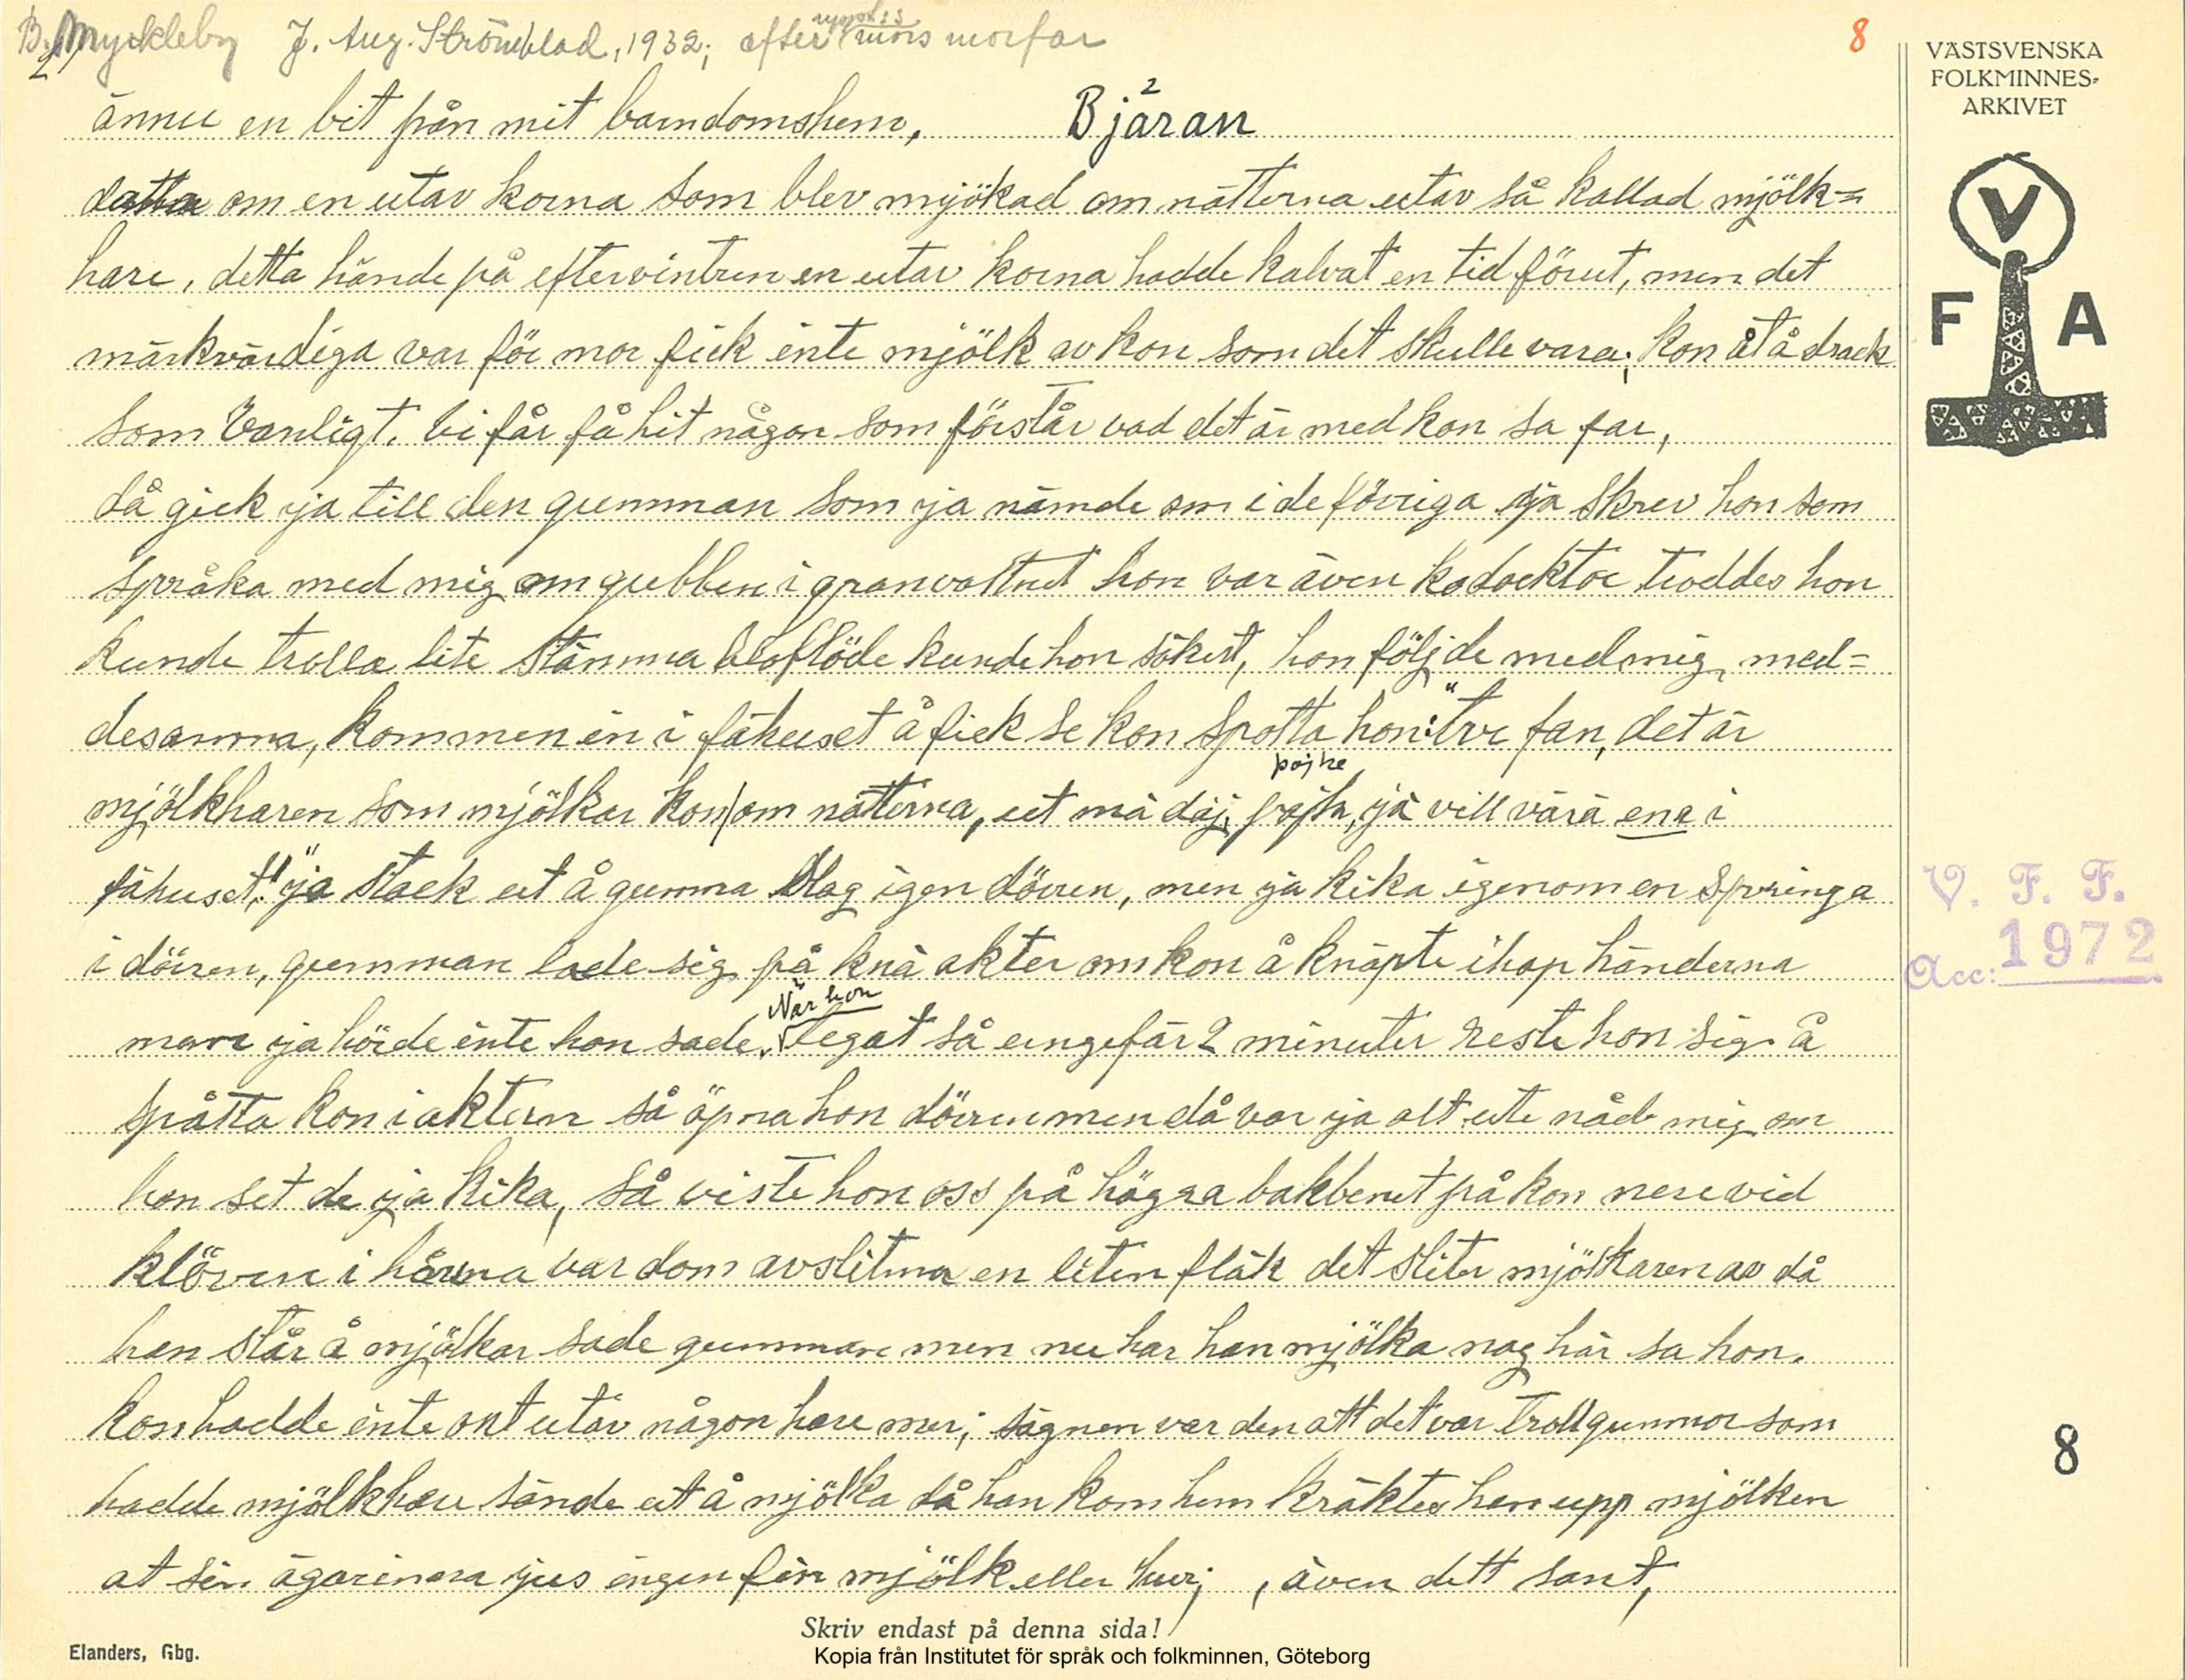 B. Myckleby J. Aug. Strömblad, 1932; efter mors morfar
8
VÄSTSVENSKA
FOLKMINNES-
ARKIVET
2
ännu en bit från mit barndomshem, Bjäran
detta om en utav korna som blev mjökad om nätterna utav så kallad mjölk=
hare, detta hände på eftervintren en utav korna hadde kalvat en tid förut, men det
märkvärdiga var för mor fick inte mjölk av kon som det skulle vara; kon åt å drack
som vanligt. vi får få hit någon som förstår vad det är med kon sa far,
då gick ja till den gumman som ja nämde om i de förriga ja skrev hon som
språka med mig om gubben i granvattnet hon var även kodocktor troddes hon
kunde trolla lite stämma bloflöde kunde hon säkert, hon följde med mig med=
desamma, kommen in i fähuset å fick se kon spotta hon: "tvi fan, det är
mjölkharen som mjölkar kon om nätterna, ut må däj, pojke, jä vill värä ena i
pojke
fähuset." ja stack ut å gumma slag igen dörren, men ja kika igenom en springa
i dörren, gumman lade sig på knä akter om kon å knäpte ihop händerna
men ja hörde inte hon sade. När hon legat så ungefär 2 minuter reste hon sig å
spåtta kon i aktern så öpna hon dörren men då var ja alt ute nåde mig om
hon set de ja kika, så viste hon oss på högra bakbenet på kon nere vid
klöven i håruna var dom avslitna en liten fläk det sliter mjölkaren av då
han står å mjölkar sade gumman men nu har han mjölka nog här sa hon.
kon hadde inte ont utav någon hare mer; sägnen var den att det var trollgummor som
hadde mjölkhare sände ut å mjölka då han kom hem kräktes han upp mjölken
at sin ägarinna jus ingen fin mjölk eller hur; , även dett sant,
Skriv endast på denna sida!
Elanders, Gbg.
Kopia från Institutet för språk och folkminnen, Göteborg
V
F A
V. F. F.
Acc: 1972
8